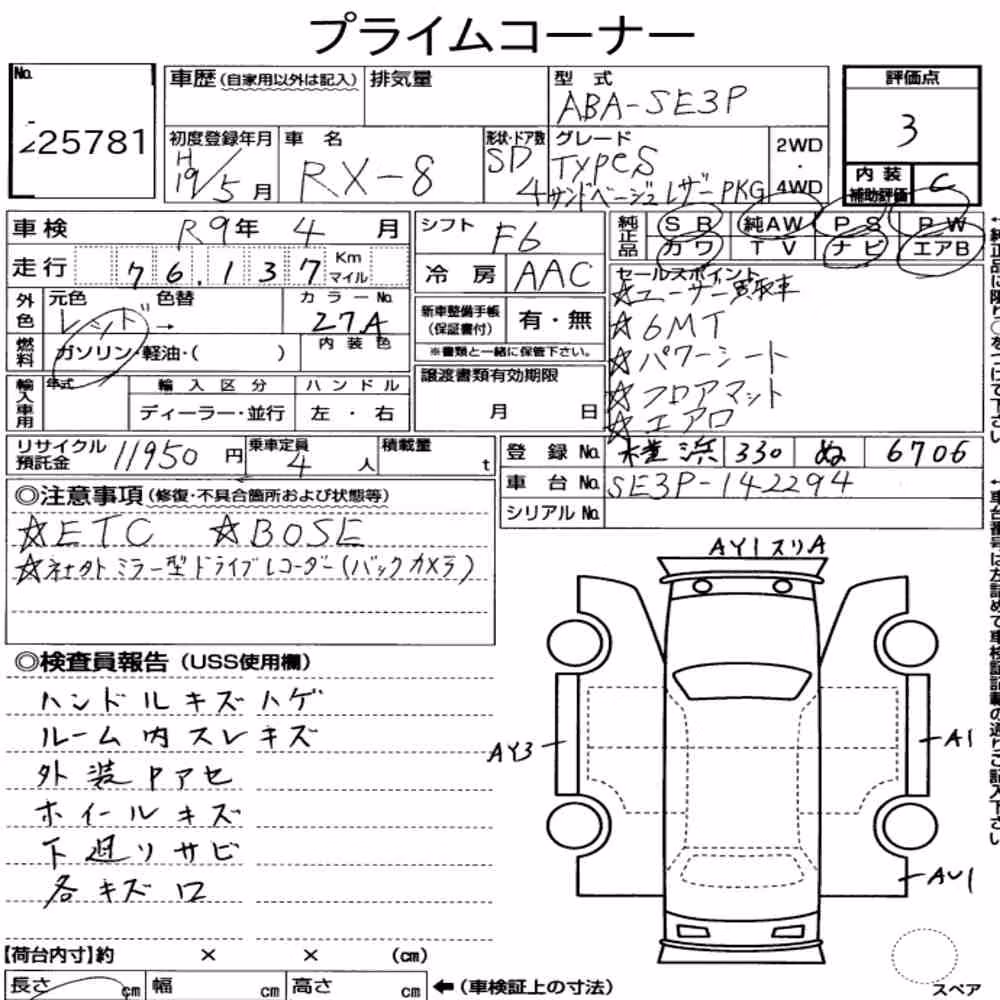 プライムコーナー
No. 225781
車歴 (自家用以外は記入)
排気量
型式 ABA-SE3P
評価点 3
内装補助評価 C
初度登録年月 H19/5月
車名 RX-8
形状・ドア数 SD 4
グレード TYPES サンドベージュレザーPKG
2WD・4WD
車検 R9年 4月
シフト F6
純正品 SR 純AW PS PW
カワ TV ナビ エアB
走行 76,137 Km マイル
冷房 AAC
外色 元色 レッド → 色替
カラーNo. 27A
新車整備手帳(保証書付) 有・無
※書類と一緒に保管下さい。
燃料 ガソリン・軽油・( )
内装色
セールスポイント
☆ユーザー買取車
☆6MT
☆パワーシート
☆フロアマット
☆エアロ
輸入車用 年式 輸入区分 ハンドル
ディーラー・並行 左・右
譲渡書類有効期限
月 日
リサイクル預託金 11950円
乗車定員 4人
積載量 t
登録No. 横浜 330 ぬ 6706
車台No. SE3P-142294
シリアルNo.
◎注意事項(修復・不具合箇所および状態等)
☆ETC ☆BOSE
☆社外ミラー型ドライブレコーダー(バックカメラ)
◎検査員報告(USS使用欄)
ハンドルキズハゲ
ルーム内スレキズ
外装Pアセ
ホイールキズ
下廻りサビ
各キズ凹
AY1スリA
AY3
A1
AU1
【荷台内寸】約 × × (cm)
長さ cm 幅 cm 高さ cm ←(車検証上の寸法)
スペア
←純正品に限り○をつけて下さい
←車台番号は左詰めで車検証記載の通りご記入下さい